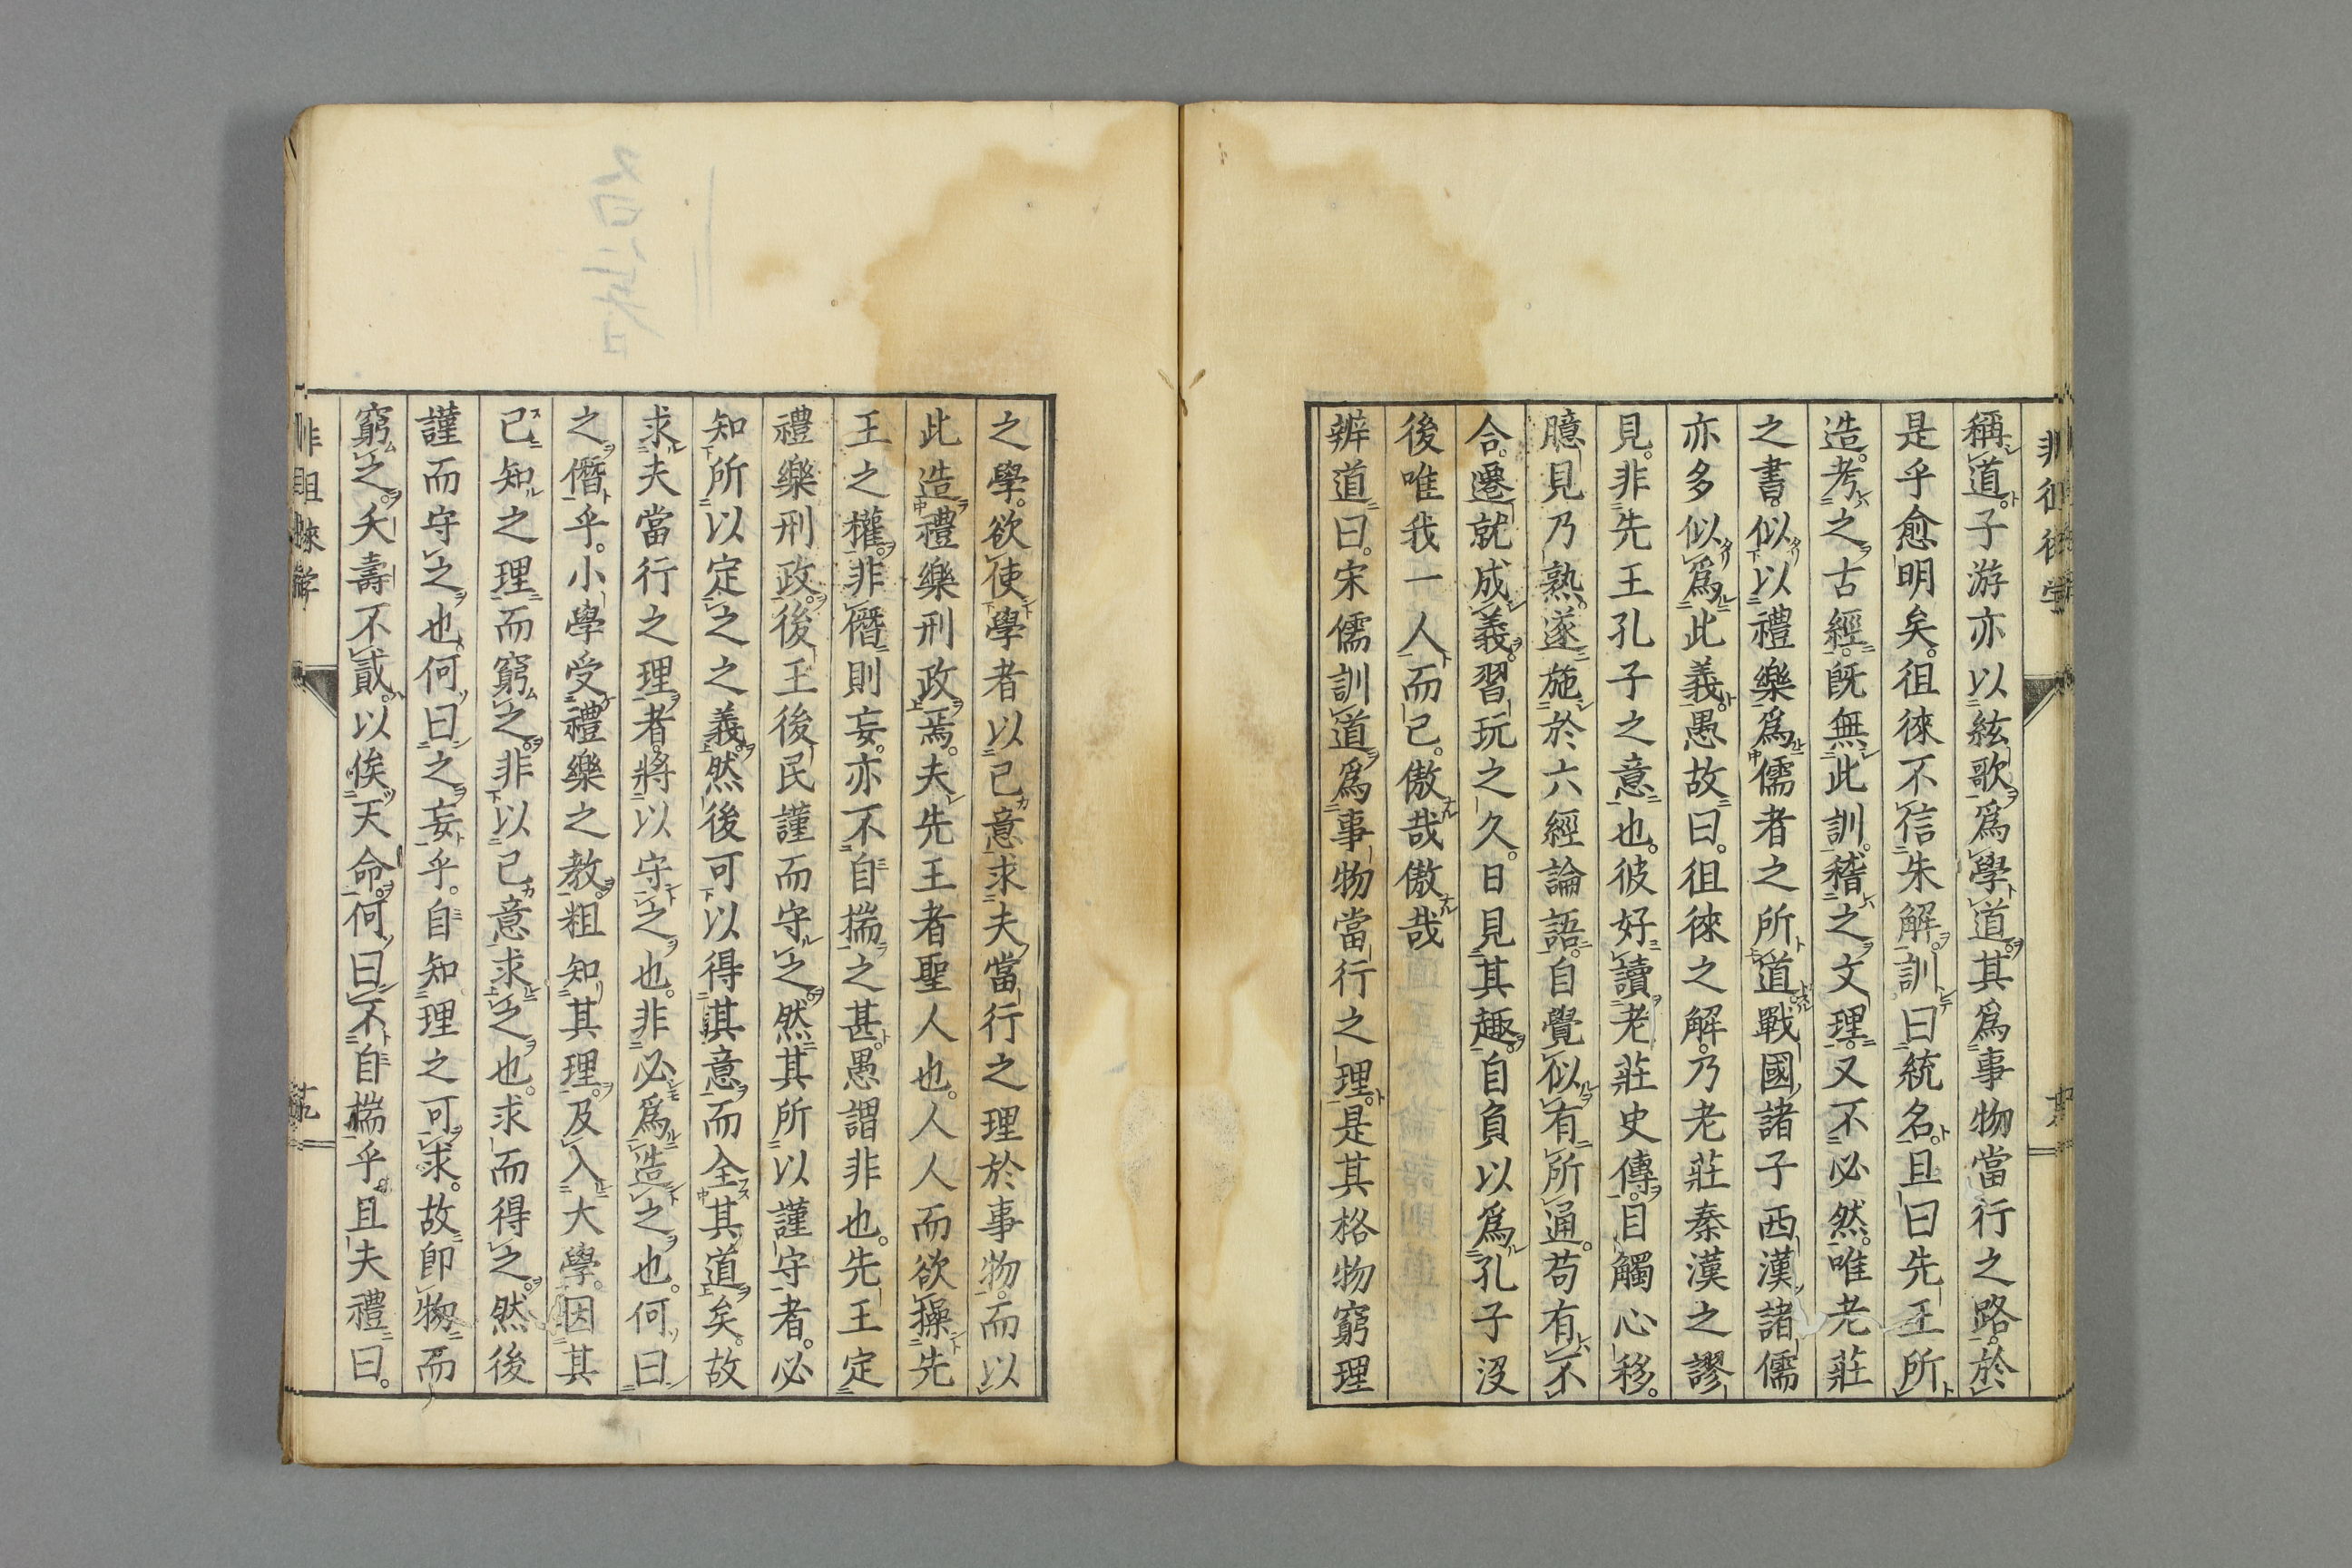 稱道子游亦以絃歌爲學道其爲事物當行之路於
是乎愈明矣。徂徠不信朱解。訓曰統名。且曰先王所
造。考之古經。既無此訓。稽之文理。又不必然。唯老莊
之書。似以禮樂爲儒者之所道戰國諸子西漢諸儒
亦多似爲此義愚故曰。徂徠之解。乃老莊秦漢之謬
見。非先王孔子之意也。彼好讀老莊史傳。目觸心移。
臆見乃熟。遂施於六經論語。自覺似有所通。苟有不
合。遷就成義。習玩之久。日見其趣。自負以爲孔子沒
後唯我一人而已。傲哉傲哉
辨道曰。宋儒訓道爲事物當行之理。是其格物窮理
之學。欲使學者以己意求夫當行之理於事物。而以
此造禮樂刑政焉。夫先王者聖人也。人人而欲操先
王之權。非僭則妄。亦不自揣之甚。愚謂非也。先王定
禮樂刑政。後王後民謹而守之。然其所以謹守者。必
知所以定之之義。然後可以得其意而全其道矣。故
求夫當行之理者。將以守之也。非必爲造之也。何曰
之僭乎。小學受禮樂之教。粗知其理。及入大學。因其
已知之理而窮之。非以己意求之也。求而得之。然後
謹而守之也。何曰之妄乎。自知理之可求。故即物而
窮之。夭壽不貳。以俟天命。何曰不自揣乎。且夫禮曰。